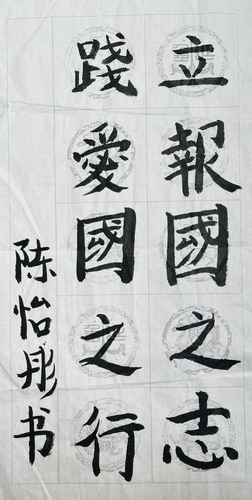 立報國之志
踐愛國之行
陈怡彤书